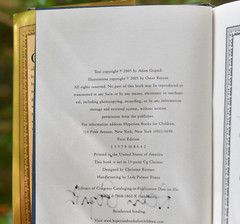 Text copyright © 2007 by Adam Gopnik
Illustrations copyright © 2007 by Omar Rayyan
All rights reserved. No part of this book may be reproduced or
transmitted in any form or by any means, electronic or mechani-
cal, including photocopying, recording, or by any information
storage and retrieval system, without written
permission from the publisher.
For information address Hyperion Books for Children,
114 Fifth Avenue, New York, New York 10011-5690.
First Edition
Printed in the United States of America
This book is set in 13-point Cg Cloister.
Designed by Christine Kettner
Handlettering by Leah Palmer Preiss
Library of Congress Cataloging-in-Publication Data on file.
Reinforced binding
Visit www.hyperionbooksforchildren.com